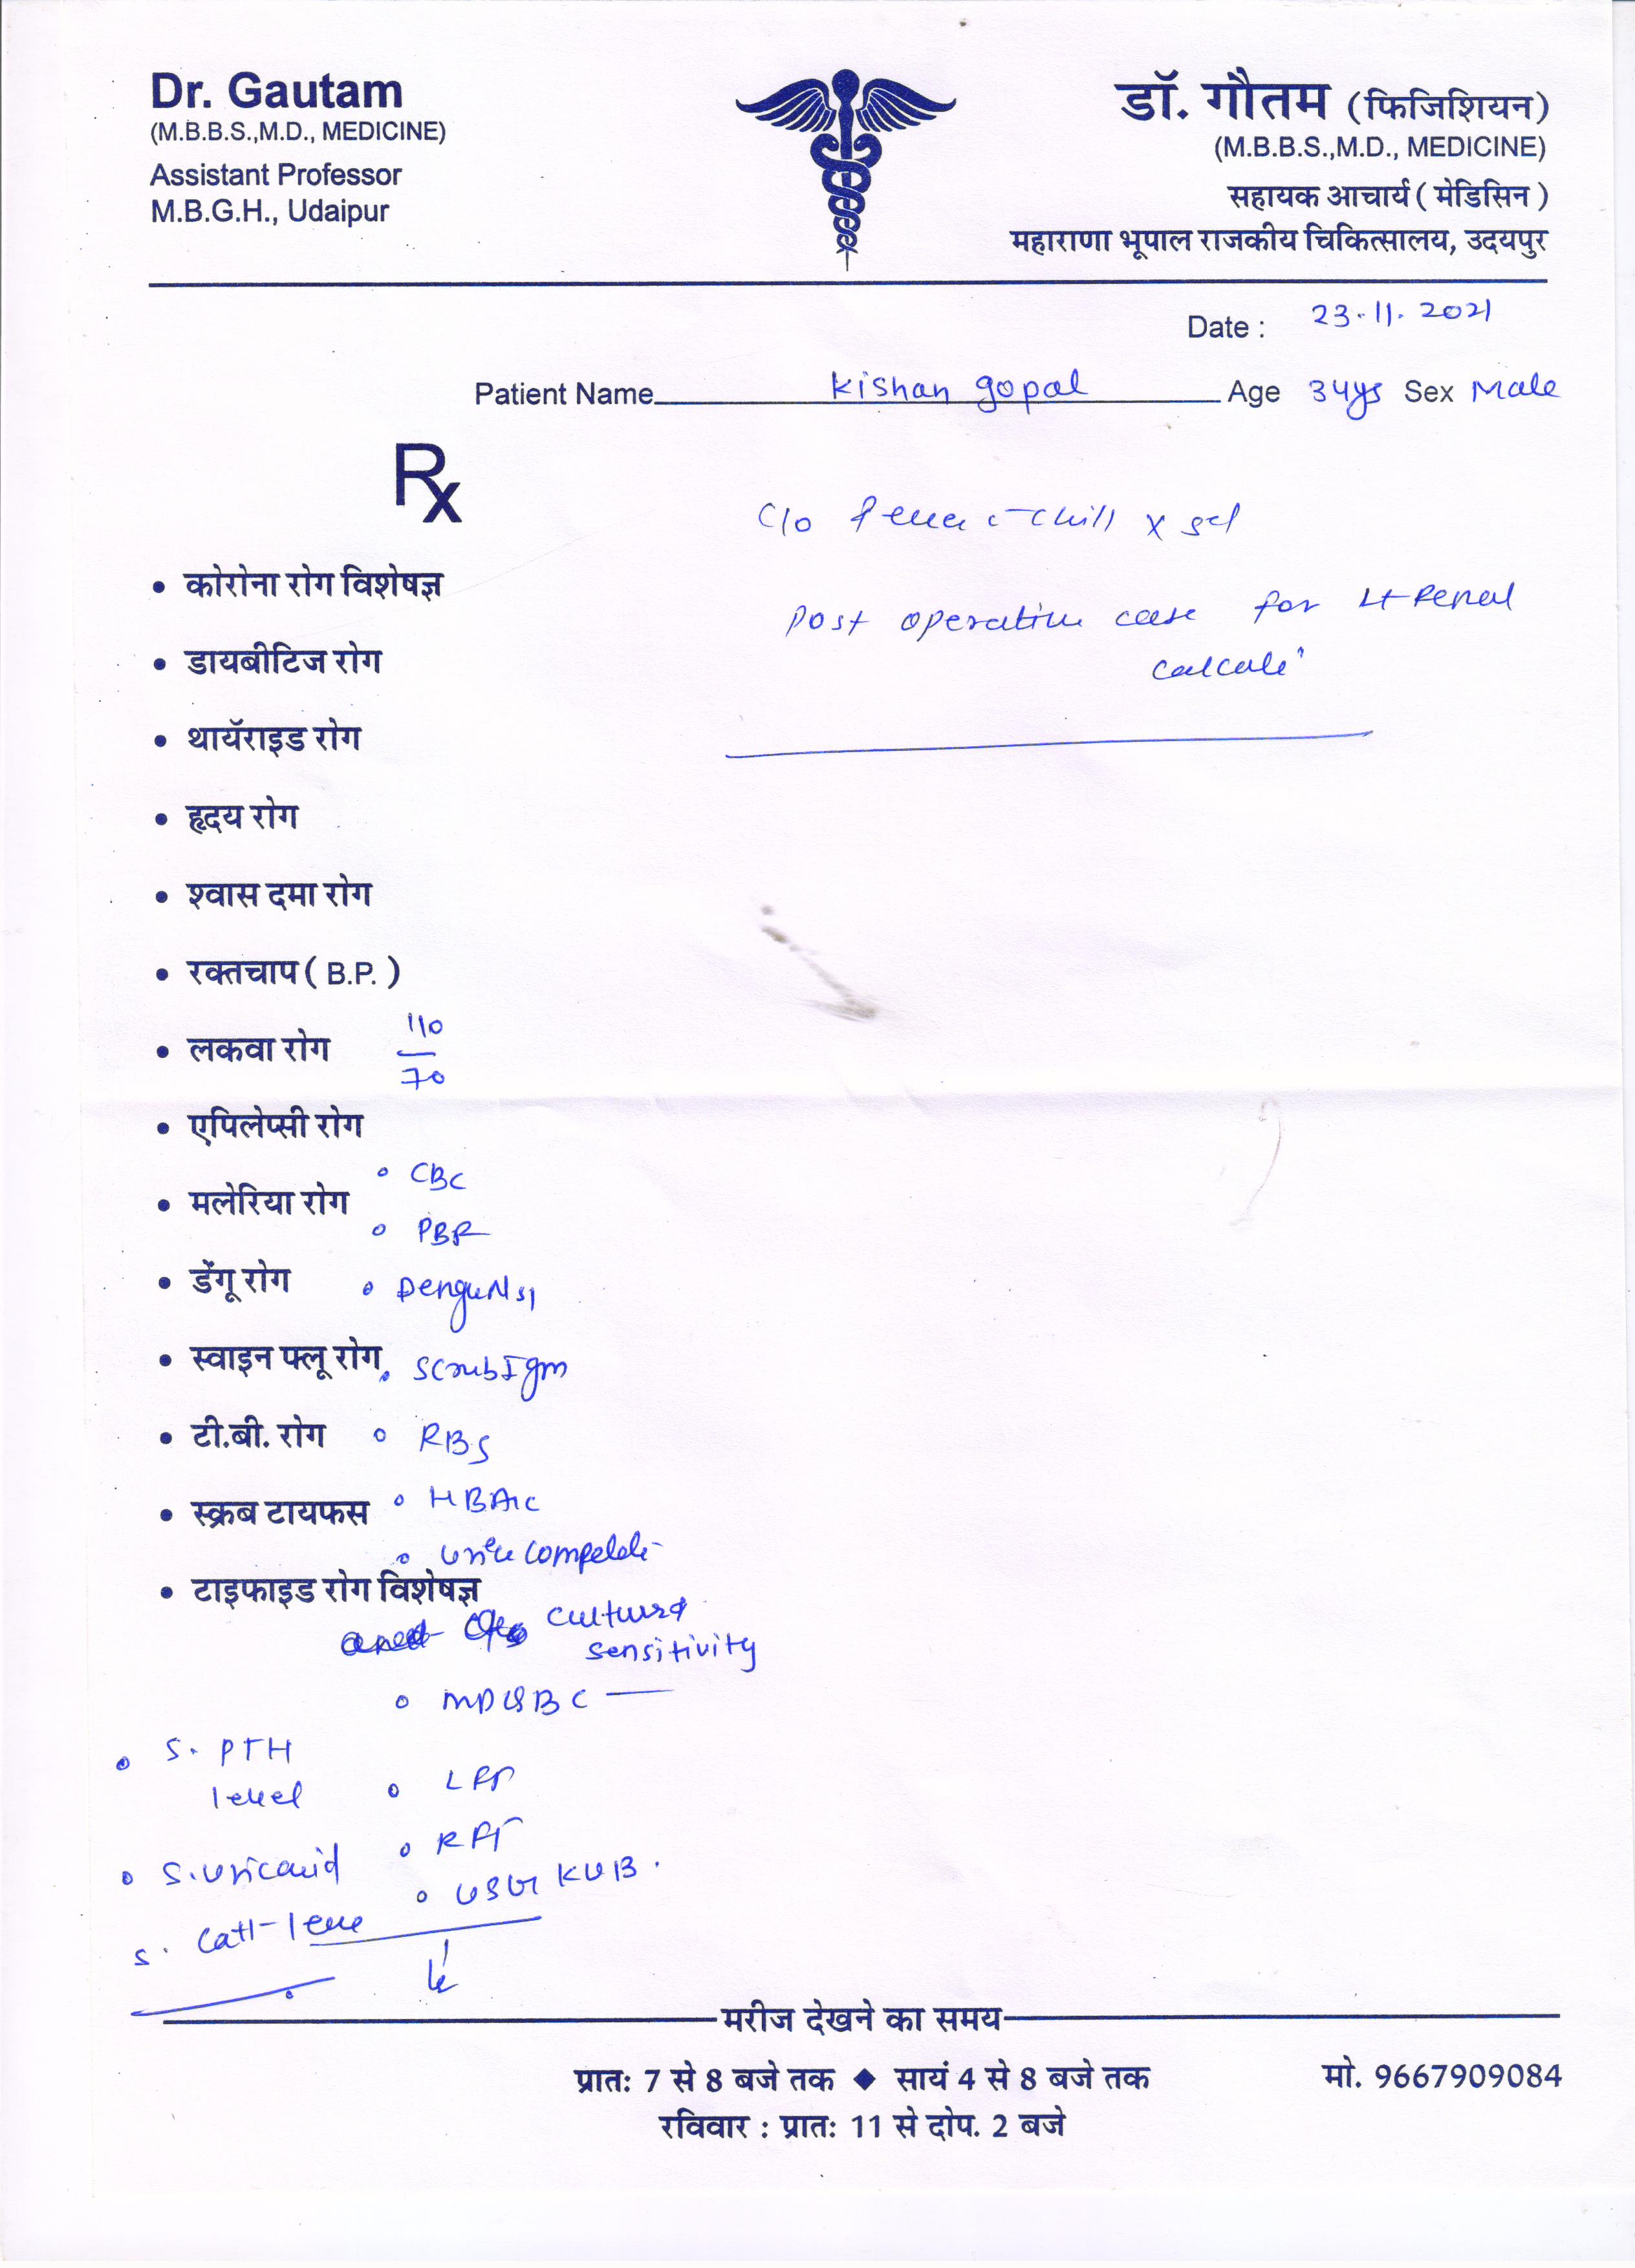 Dr. Gautam
(M.B.B.S.,M.D., MEDICINE)
Assistant Professor
M.B.G.H., Udaipur
डॉ. गौतम (फिजिशियन)
(M.B.B.S.,M.D., MEDICINE)
सहायक आचार्य ( मेडिसिन )
महाराणा भूपाल राजकीय चिकित्सालय, उदयपुर
Date : 23.11.2021
Patient Name Kishan gopal Age 34ys Sex Male
Rx
C/o fever c chill x
Post operative case for Lt Renal
calculi
• कोरोना रोग विशेषज्ञ
• डायबीटिज रोग
• थायॅराइड रोग
• हृदय रोग
• श्वास दमा रोग
• रक्तचाप ( B.P. )
• लकवा रोग 110/70
• एपिलेप्सी रोग
• CBC
• मलेरिया रोग
• PBF
• डेंगू रोग • Dengu NS1
• स्वाइन फ्लू रोग • Scrub Igm
• टी.बी. रोग • RBS
• स्क्रब टायफस • HBA1C
• Urine compelete
• टाइफाइड रोग विशेषज्ञ
and culture
sensitivity
•
• S. PTH
level
• LFT
• RFT
• S. Uric acid
• USG KUB.
S. Ca++
मरीज देखने का समय
प्रातः 7 से 8 बजे तक ◆ सायं 4 से 8 बजे तक
मो. 9667909084
रविवार : प्रातः 11 से दोप. 2 बजे